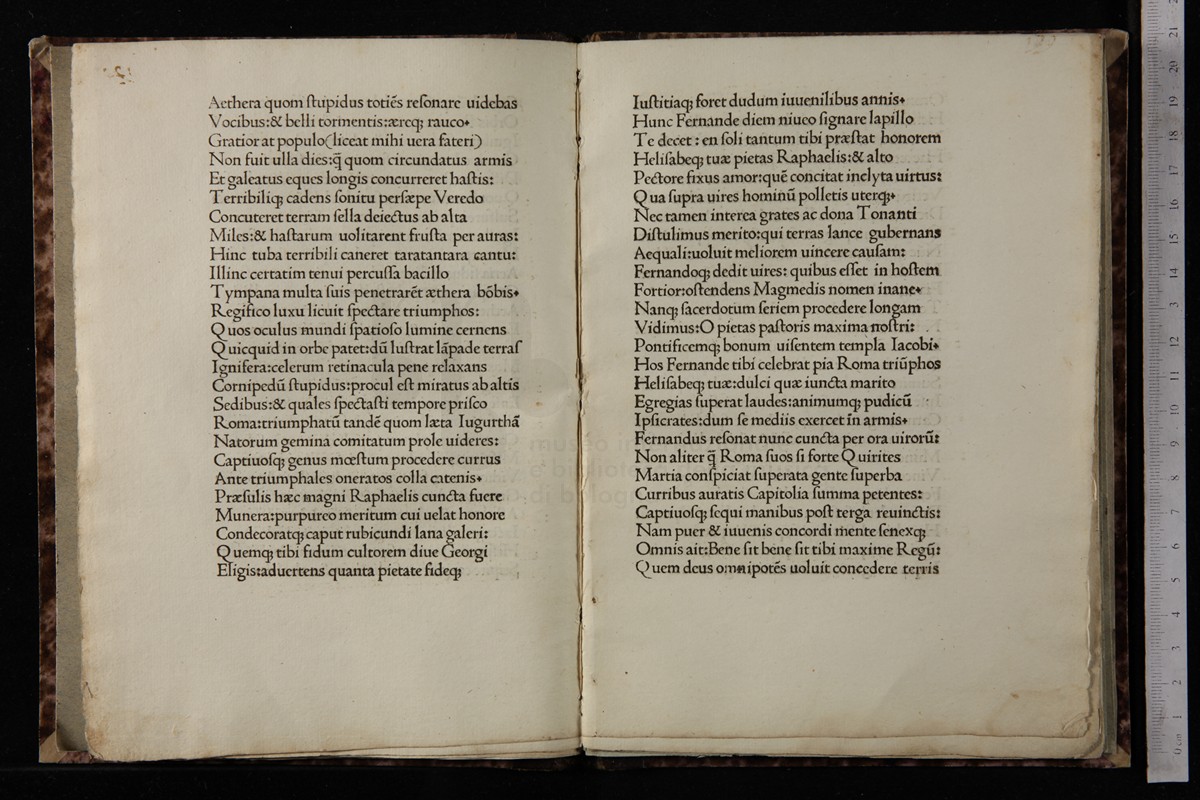 Aethera quom ſtupidus totiẽs reſonare uidebas
Vocibus:& belli tormentis:æreqꝫ rauco.
Gratior at populo(liceat mihi uera fateri)
Non fuit ulla dies:q̃ quom circundatus armis
Et galeatus eques longis concurreret haſtis:
Terribiliqꝫ cadens ſonitu perſæpe Veredo
Concuteret terram ſella deiectus ab alta
Miles:& haſtarum uolitarent fruſta per auras:
Hinc tuba terribili caneret taratantara cantu:
Illinc certatim tenui percuſſa bacillo
Tympana multa ſuis penetrarẽt æthera bõbis.
Regifico luxu licuit ſpectare triumphos:
Quos oculus mundi ſpatioſo lumine cernens
Quicquid in orbe patet:dũ luſtrat lãpade terraſ
Ignifera:celerum retinacula pene relaxans
Cornipedũ ſtupidus:procul eſt miratus ab altis
Sedibus:& quales ſpectaſti tempore priſco
Roma:triumphatũ tandẽ quom læta Iugurthã
Natorum gemina comitatum prole uideres:
Captiuoſqꝫ genus mœſtum procedere currus
Ante triumphales oneratos colla catenis.
Præſulis hæc magni Raphaelis cuncta fuere
Munera:purpureo meritum cui uelat honore
Condecoratqꝫ caput rubicundi lana galeri:
Quemqꝫ tibi fidum cultorem diue Georgi
Eligis:aduertens quanta pietate fideqꝫ
Iuſtitiaqꝫ foret dudum iuuenilibus annis.
Hunc Fernande diem niueo ſignare lapillo
Te decet : en ſoli tantum tibi præſtat honorem
Heliſabeqꝫ tuæ pietas Raphaelis:& alto
Pectore fixus amor:quẽ concitat inclyta uirtus:
Qua ſupra uires hominũ polletis uterqꝫ.
Nec tamen interea grates ac dona Tonanti
Diſtulimus merito:qui terras lance gubernans
Aequali:uoluit meliorem uincere cauſam:
Fernandoqꝫ dedit uires: quibus eſſet in hoſtem
Fortior:oſtendens Magmedis nomen inane.
Nanqꝫ ſacerdotum ſeriem procedere longam
Vidimus:O pietas paſtoris maxima noſtri:
Pontificemqꝫ bonum uiſentem templa Iacobi.
Hos Fernande tibi celebrat pia Roma triũphos
Heliſabeqꝫ tuæ:dulci quæ iuncta marito
Egregias ſuperat laudes:animumqꝫ pudicũ
Ipſicrates:dum ſe mediis exercet in armis.
Fernandus reſonat nunc cuncta per ora uirorũ:
Non aliter q̃ Roma ſuos ſi forte Quirites
Martia conſpiciat ſuperata gente ſuperba
Curribus auratis Capitolia ſumma petentes:
Captiuoſqꝫ ſequi manibus poſt terga reuinctis:
Nam puer & iuuenis concordi mente ſenexqꝫ
Omnis ait:Bene ſit bene ſit tibi maxime Regũ:
Quem deus omnipotẽs uoluit concedere terris